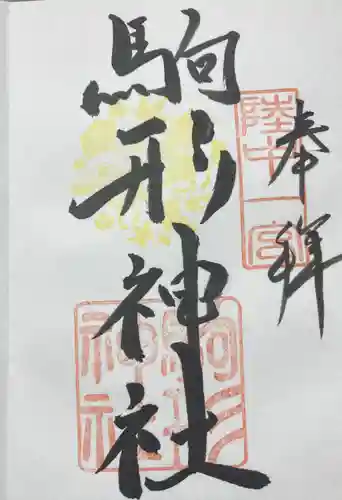 奉拝
陸中一宮
駒形神社
駒形神社